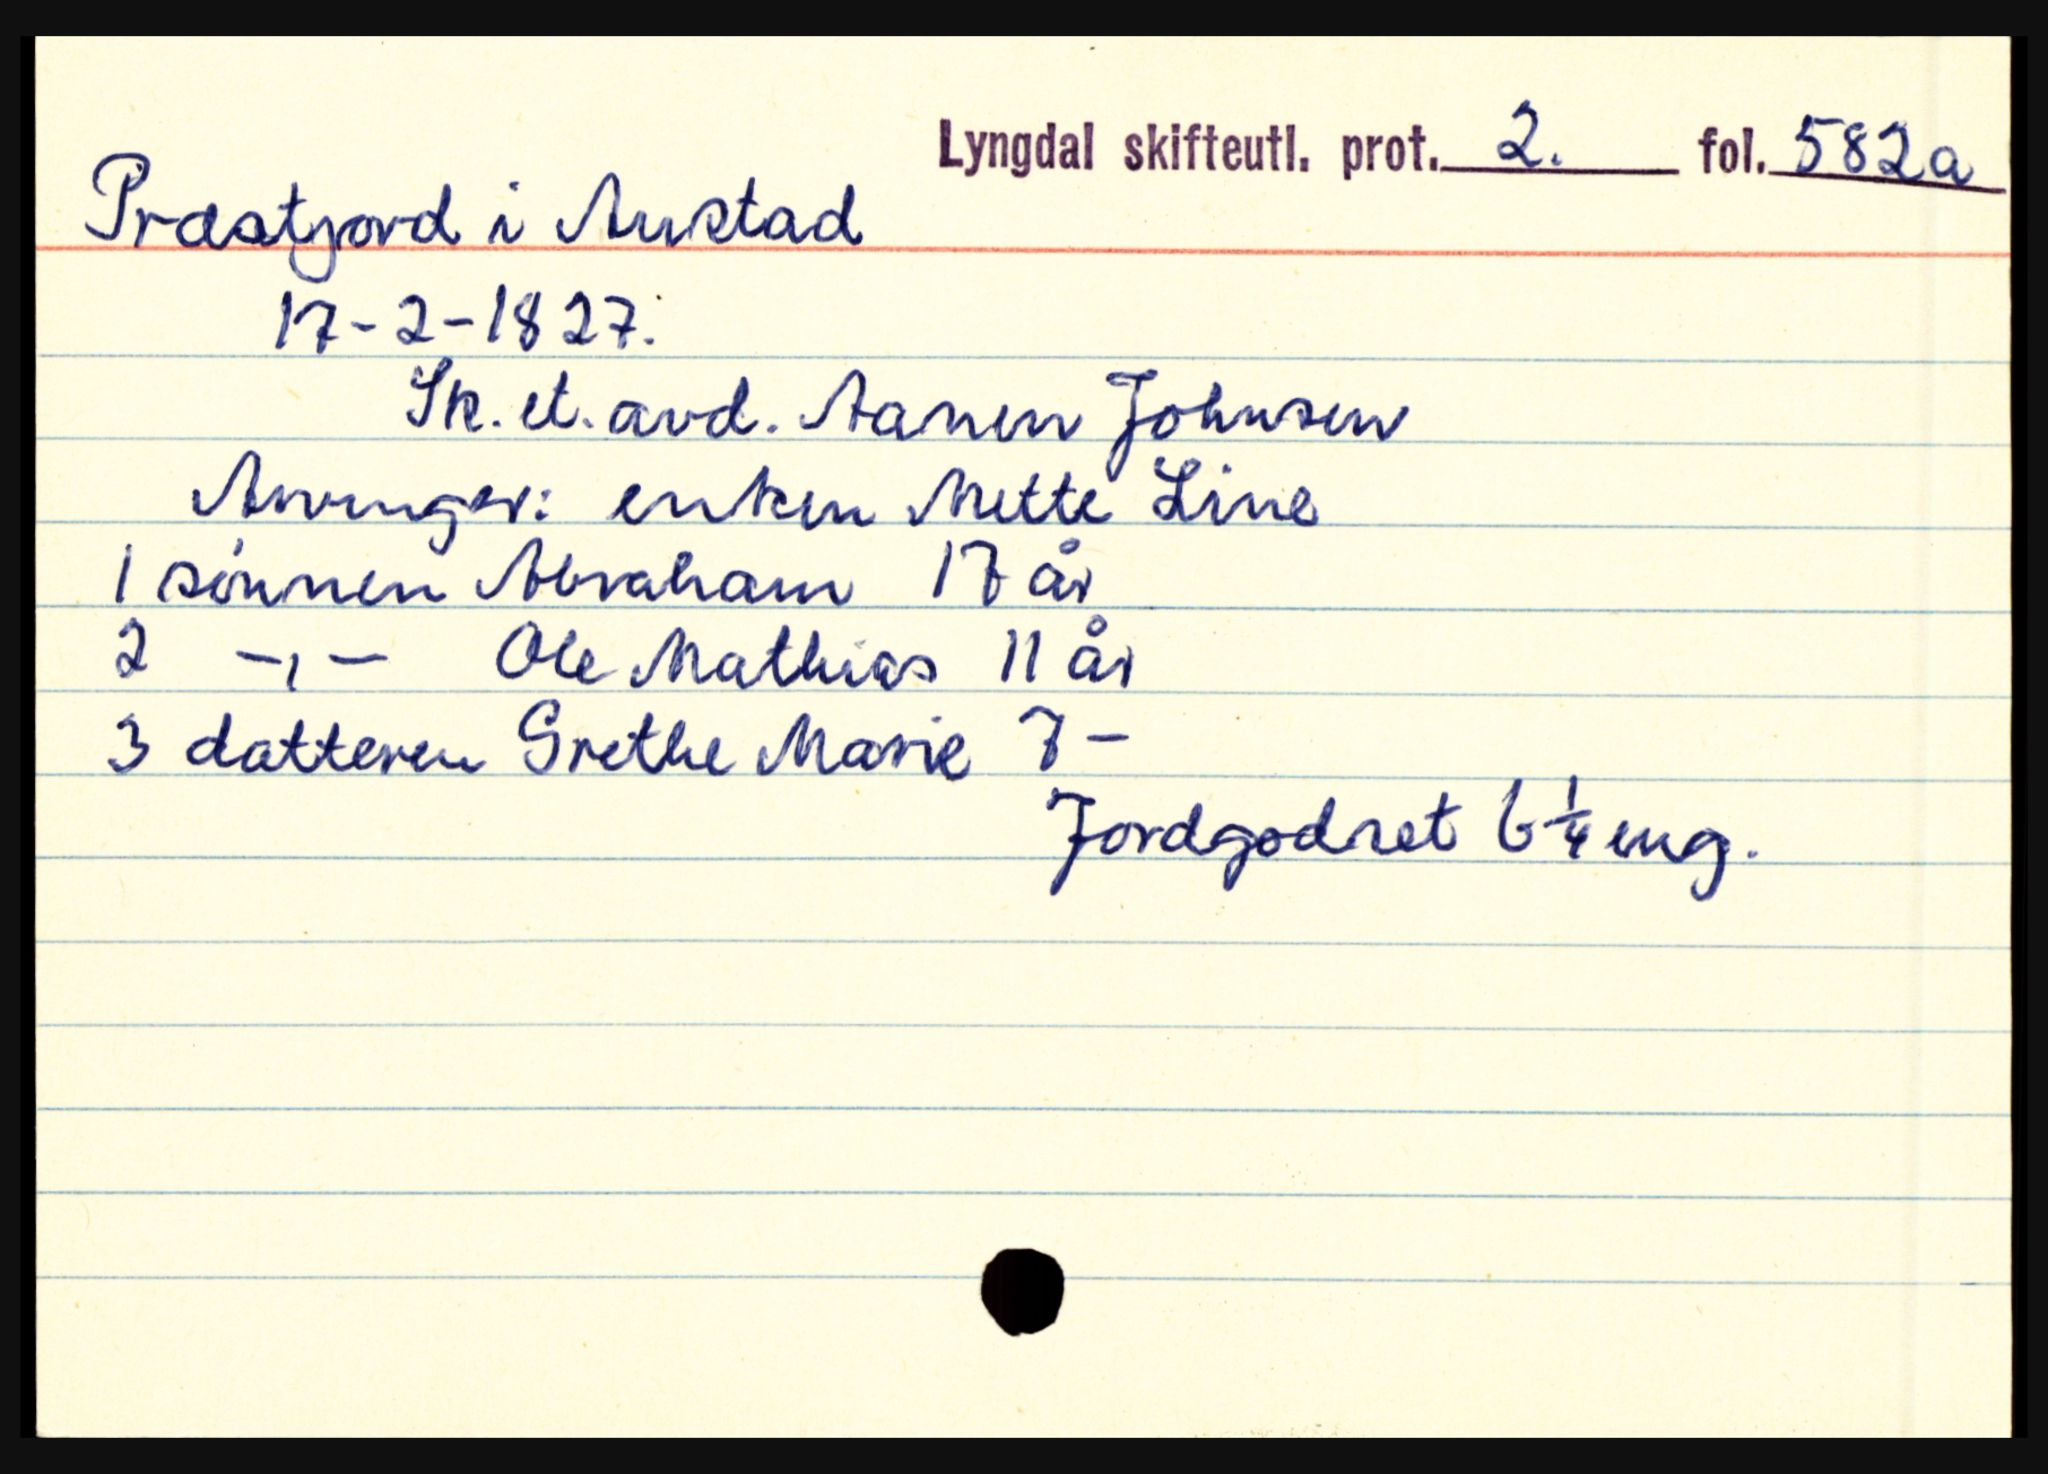 Lyngdal skifteutl. prot. 2. fol. 582a
Præstjord i Austad
17-2-1827.
Sk. et. avd. Aanen Johnsen
Arvinger: enken Mette Line
1 sönnen Abraham 17 år
2 -,- Ole Mathias 11 år
3 datteren Grethe Marie 7 -
Jordgodset 6 1/4 eng.